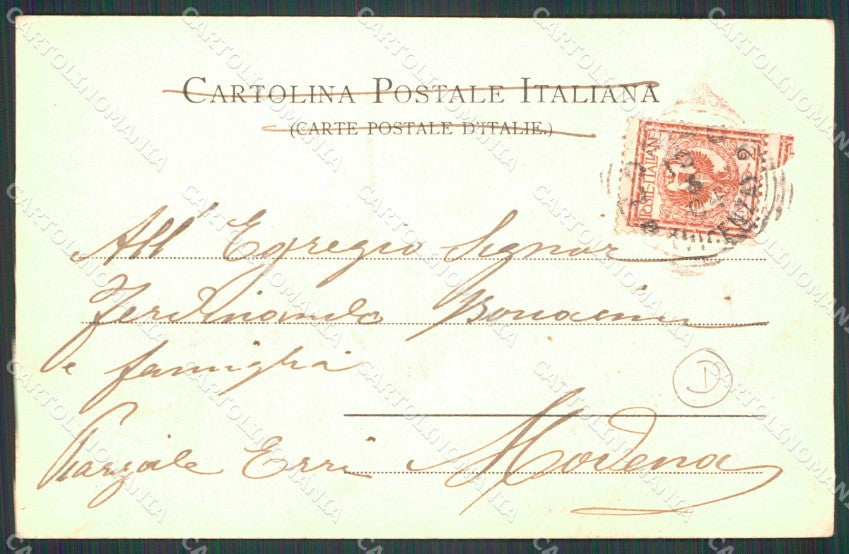 CARTOLINA POSTALE ITALIANA
(CARTE POSTALE D'ITALIE.)
POSTE ITALIANE
All' Egregio Signor
Ferdinando Bonacini
e famiglia
Piazzale Erri Modena
D
CARTOLINOMANIA